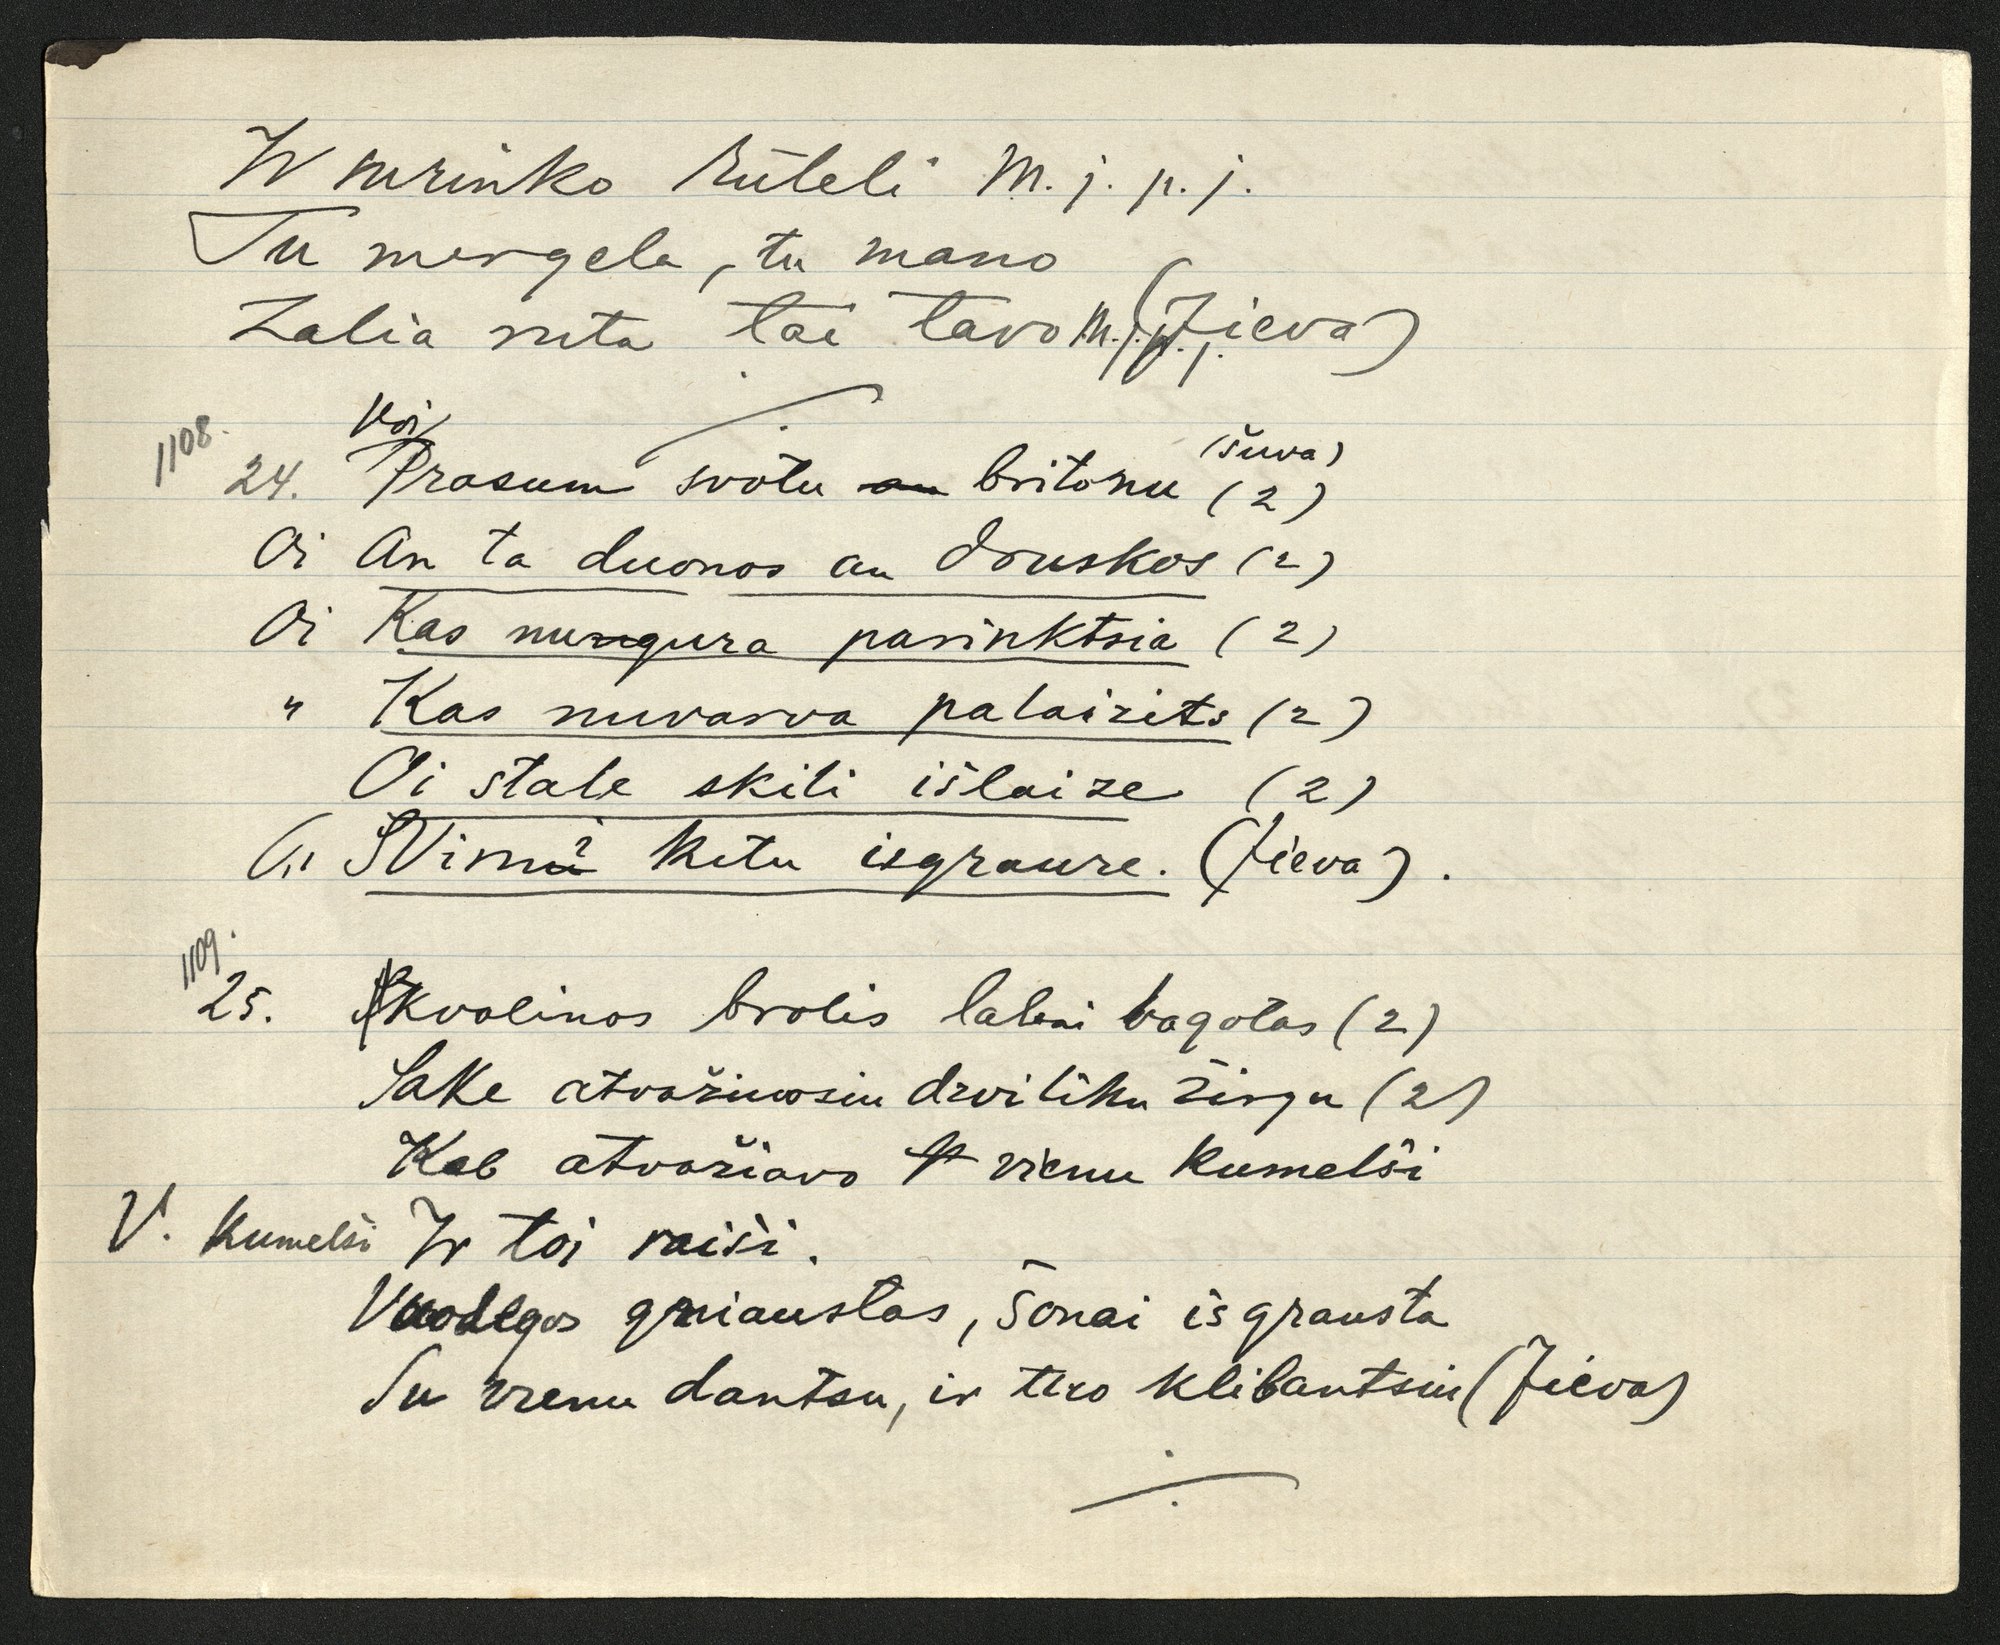 Ir nurinko rūteli M. j. p. j.
Tu mergela, tu mano
Zalia ruta tai tavo M. j. p. j. (Jieva)
1108.
Voi (šuva)
24. Prasum svotu an britonu (2)
Oi An ta duonos an druskos (2)
Oi Kas nungura parinktsia (2)
" Kas nuvarva palaizits (2)
Oi stale skili išlaize (2)
Svimu kitu isgrauze. (Jieva).
1109.
25. Kvolinos brolis labai bagotas (2)
Sake atvažiuosiu dviliku žirgu (2)
Kab atvažiavo vienu kumelši
V. kumelši Ir toi raiši.
Vuodegos gniaustas, šonai is grausta
Su vienu dantsu, ir tiro klibantsiu (Jieva)